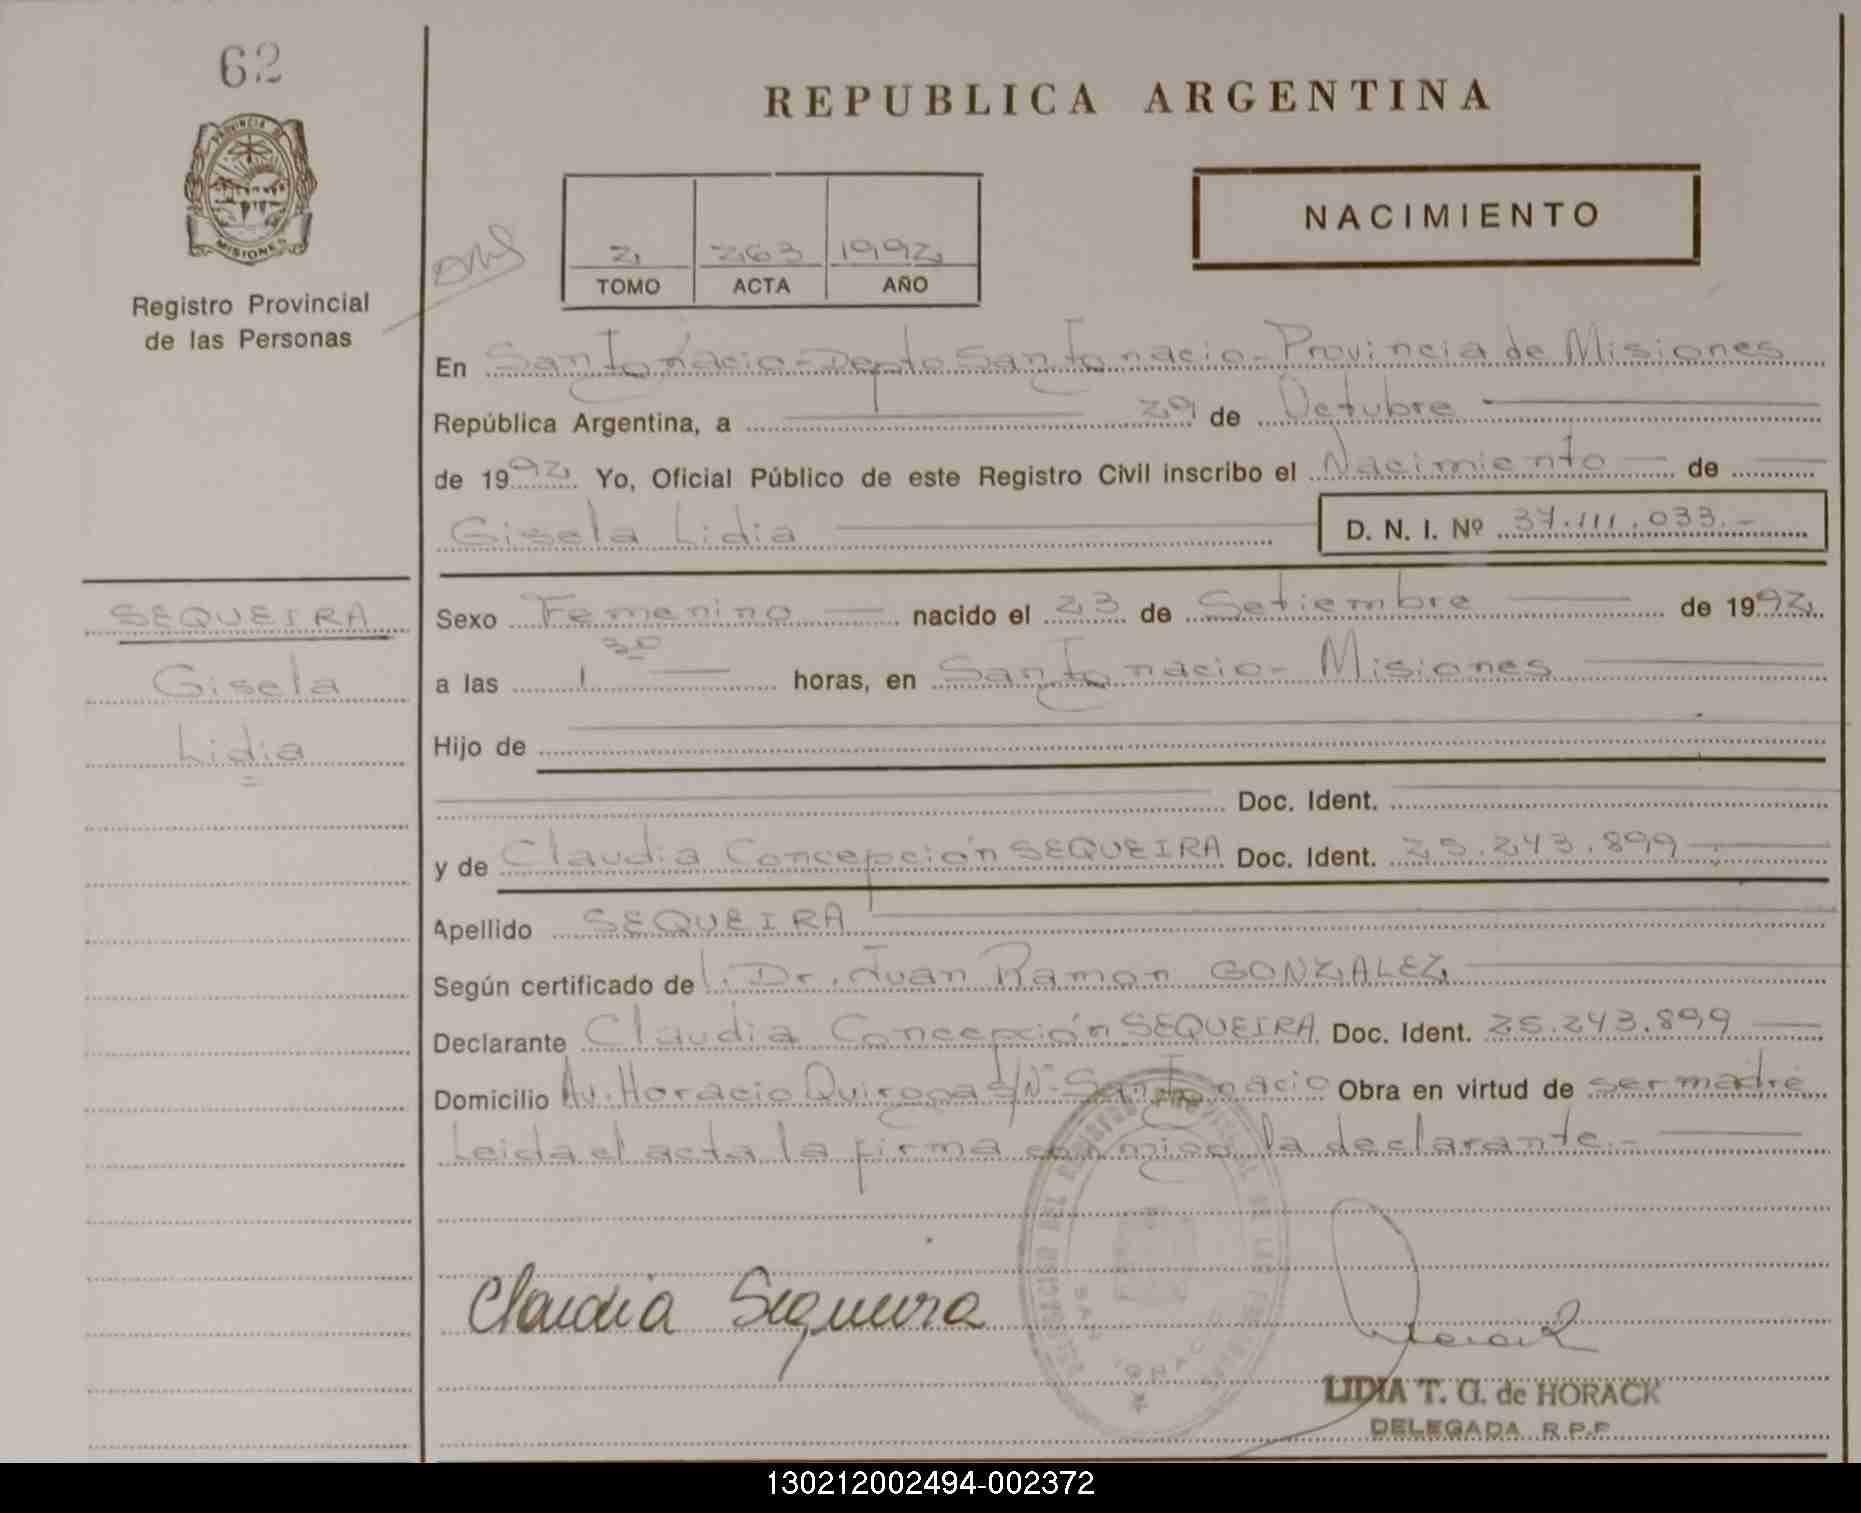 62
PROVINCIA DE
MISIONES
Registro Provincial
de las Personas
REPUBLICA ARGENTINA
NACIMIENTO
2 263 1992
TOMO ACTA AÑO
En San Ignacio - Depto San Ignacio - Provincia de Misiones
República Argentina, a 29 de Octubre
de 1992 Yo, Oficial Público de este Registro Civil inscribo el Nacimiento de
Gisela Lidia D. N. I. Nº 37.111.033.-
SEQUEIRA
Gisela
Lidia
Sexo Femenino nacido el 23 de Setiembre de 1992
a las 1 30 horas, en San Ignacio - Misiones
Hijo de
Doc. Ident.
y de Claudia Concepción SEQUEIRA Doc. Ident. 25.243.899
Apellido SEQUEIRA
Según certificado de l. Dr. Juan Ramon GONZALEZ
Declarante Claudia Concepción SEQUEIRA Doc. Ident. 25.243.899
Domicilio Av. Horacio Quiroga s/Nº - San Ignacio Obra en virtud de ser madre
Leida el acta la firma conmigo la declarante.-
Claudia Sequeira
LIDIA T. G. de HORACK
DELEGADA R.P.P.
130212002494-002372